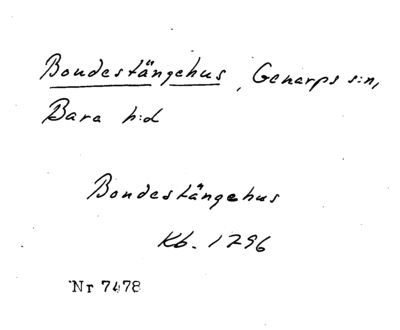 Bondestängehus, Genarps s:n,
Bara h:d
Bondestängehus
Kb. 1296
Nr 7478